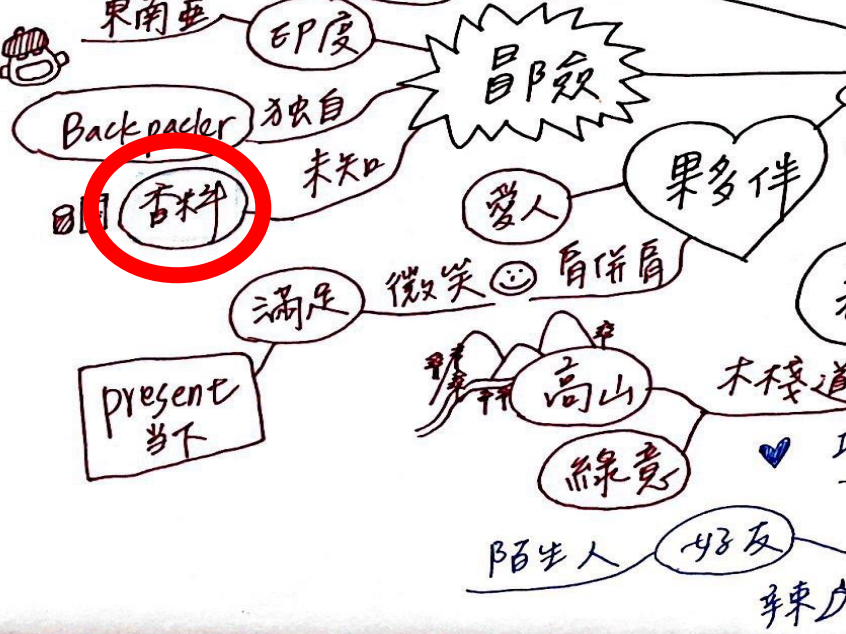 東南亜
印度
冒險
Backpacker
独自
未知
香料
愛人
夥伴
滿足
微笑
肩併肩
present
当下
高山
木棧道
綠意
陌生人
好友